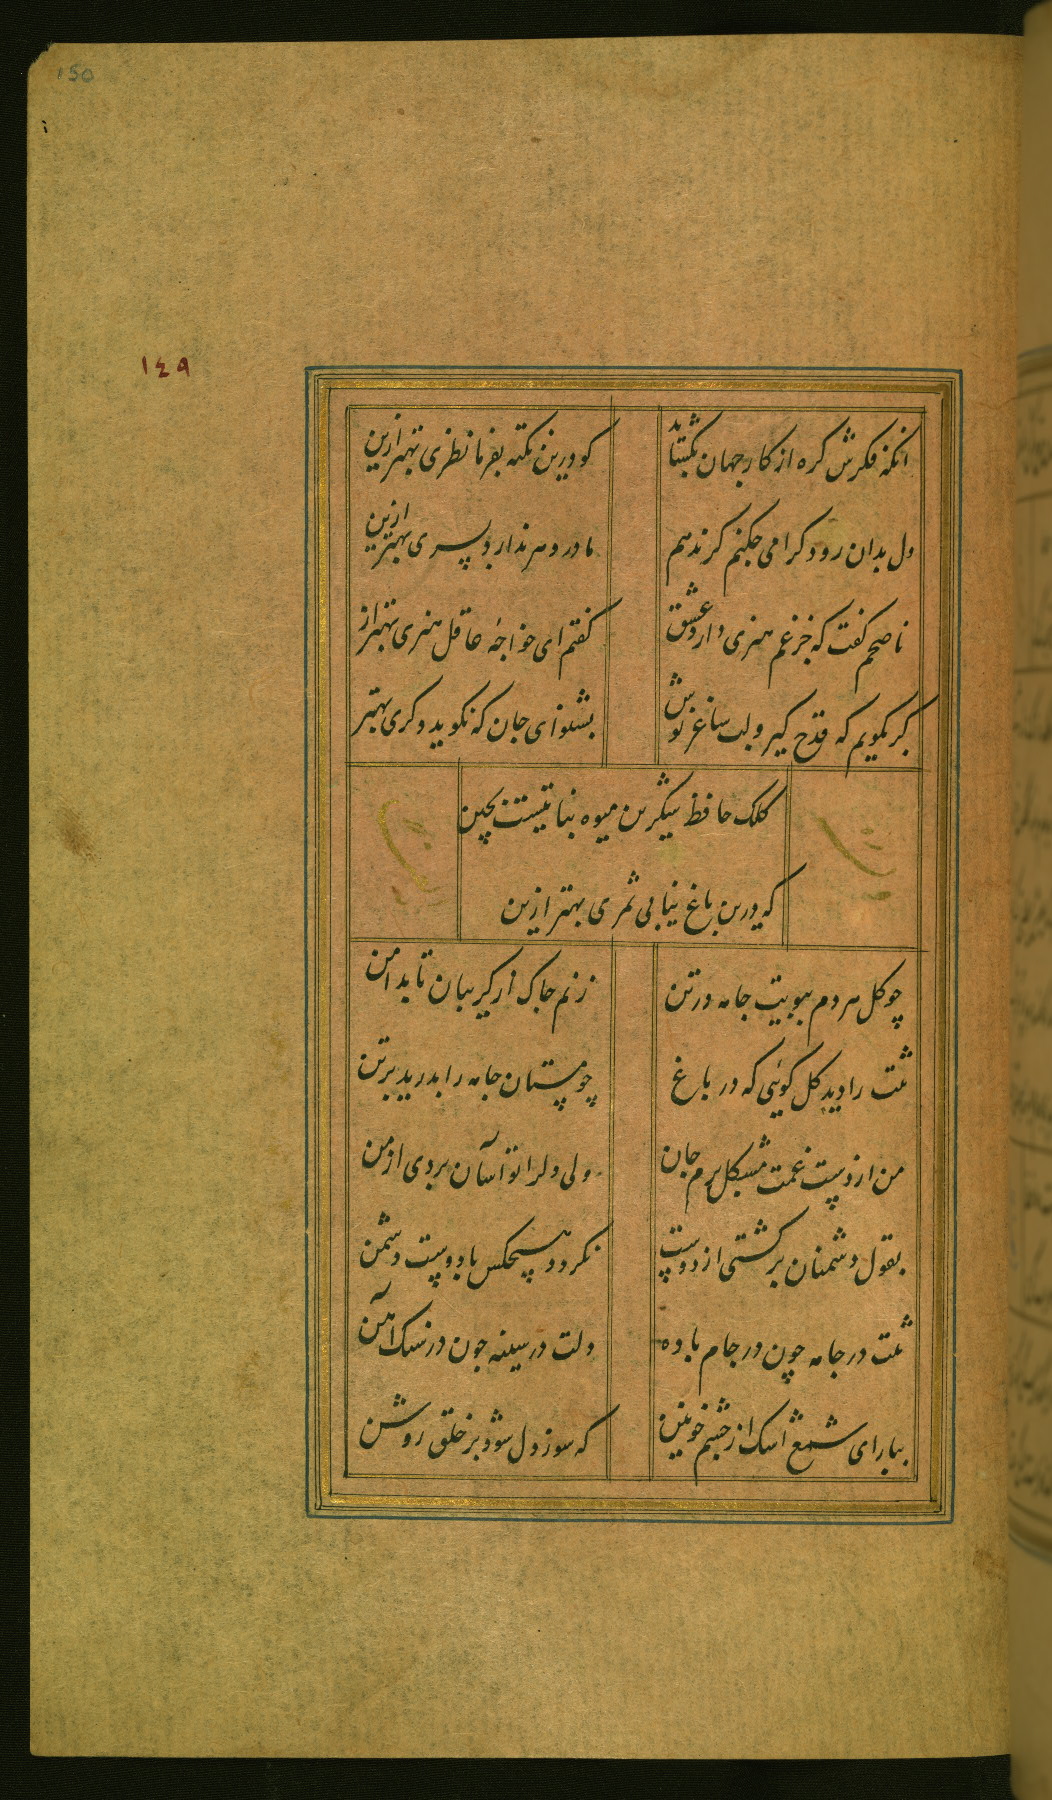 150
١٤٩
انکه فکرش کره از کار جهان بکشاید
کو درین نکته بفرما نظری بهتر ازین
دل بدان رود کرامی چکنم کر ندهم
مادر دهر ندارد پسری بهتر ازین
ناصحم کفت که جز غم هنری دارد عشق
کفتم ای خواجه عاقل هنری بهتر از
کر بکویم که قدح کیر و لب ساغر نوش
بشنو ای جان که نکوید دکری بهتر
کلک حافظ شکرین میوه نباتیست بچین
که درین باغ نیابی ثمری بهتر ازین
چو کل هر دم ببویت جامه در تن
زنم چاک از کریبان تا بدامن
تنت را دید کل کوئی که در باغ
چو مستان جامه را بدرید بر تن
من از دست غمت مشکل برم جان
ولی دل را تو آسان بردی از من
بقول دشمنان برکشتی از دوست
نکردد هیچکس با دوست دشمن
تنت در جامه چون در جام باده
دلت در سینه چون در سنک آهن
ببار ای شمع اشک از چشم خونین
که سوز دل شود بر خلق روشن